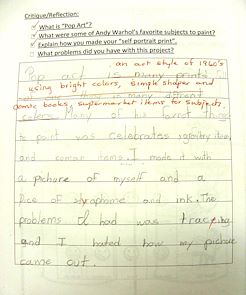 Critique/Reflection:
What is "Pop Art"?
What were some of Andy Warhol's favorite subjects to paint?
Explain how you made your "self portrait print".
What problems did you have with this project?
an art style of 1960's
Pop art is many prints
using bright colors, simple shapes and
many diffrent
comic books, supermarket items for subjects.
colers. Many of his favret things
to paint was celebrates
and comon items. I made it with
a picture of myself and a
Pice of styraphome and ink. The
problems I had was tracing
and I hated how my pichure
came out.